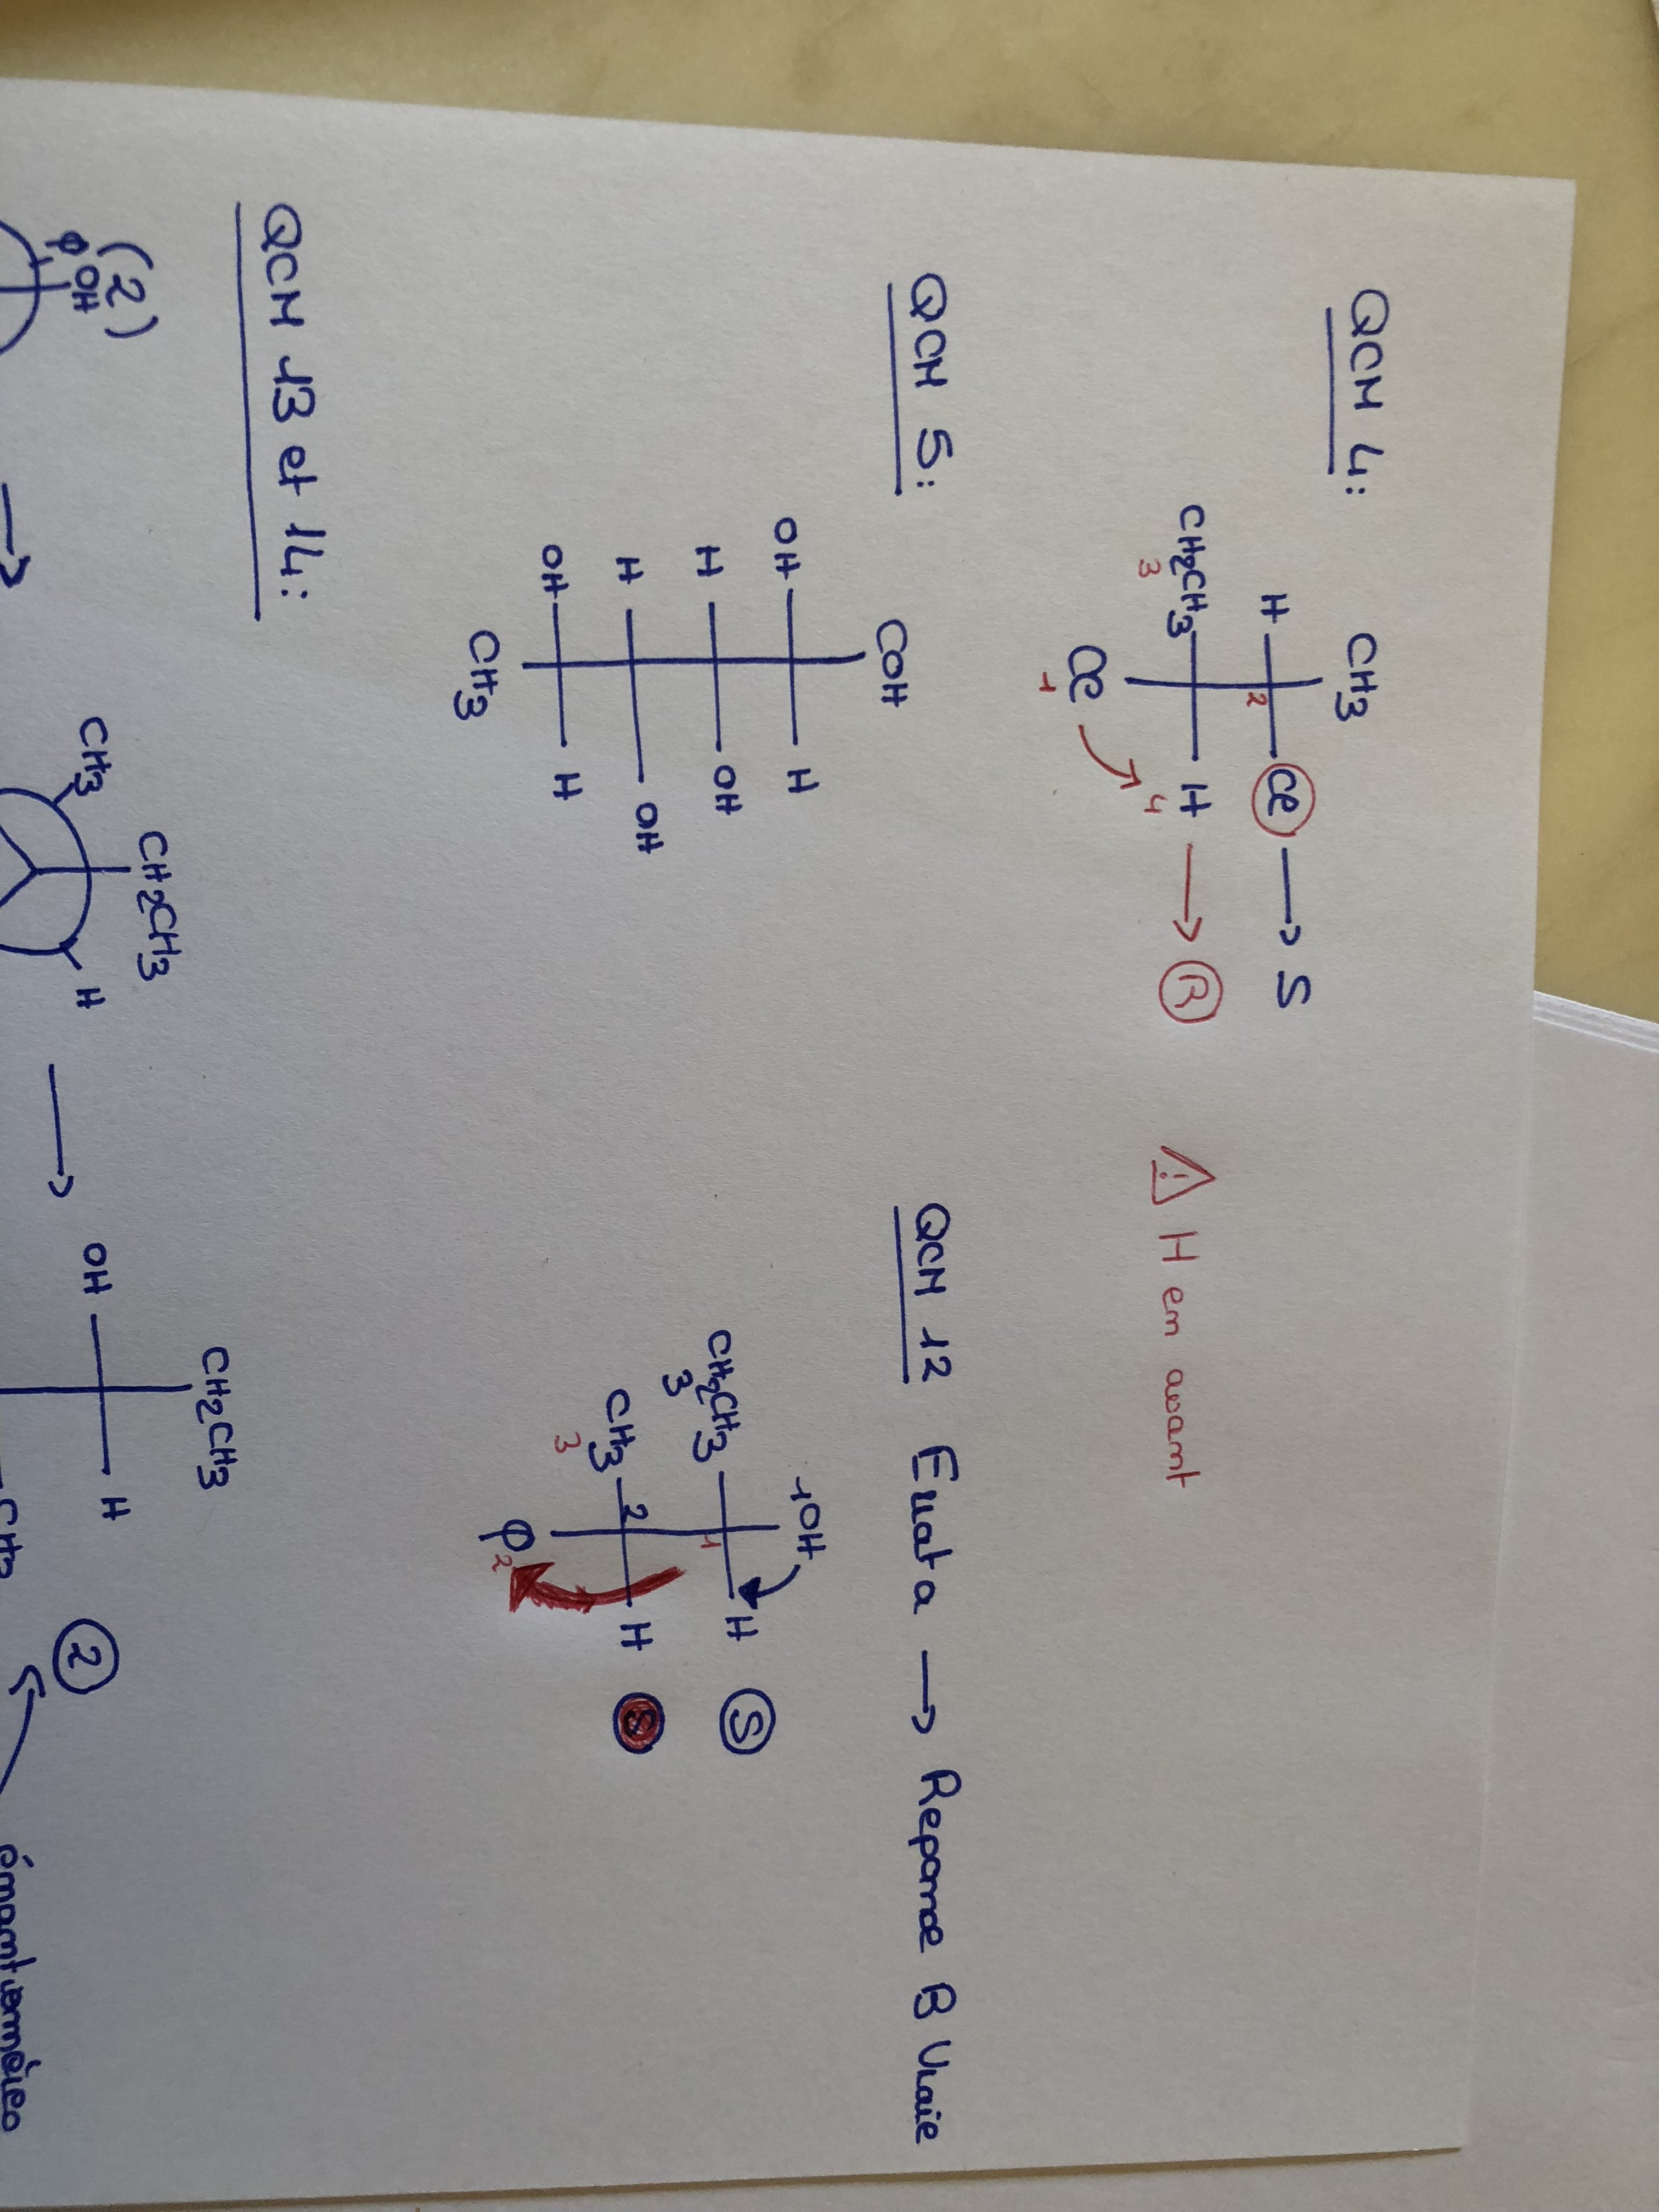 QCM 4:
CH3
H 2 Cl → S
CH2CH3 H → R
3 4
Cl
1
⚠ H en avant
QCM 5:
COH
OH H
H OH
H OH
OH H
CH3
QCM 12 Errata → Reponse B Vraie
1OH
CH2CH3 1 H S
3
CH3 2 H S
3
Φ
2
QCM 13 et 14:
(2)
Φ OH
→
CH3
CH2CH3
H
→
CH2CH3
OH H
2
énantiomères